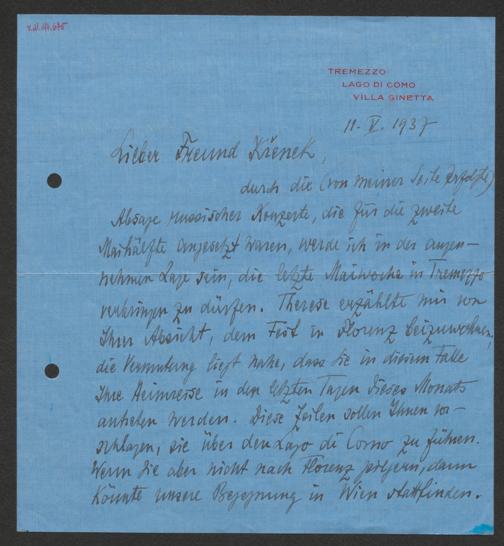 TREMEZZO
LAGO DI COMO
VILLA GINETTA
11. V. 1937
Lieber Freund Křenek,
durch die (von meiner Seite erfolgte)
Absage russischer Konzerte, die für die zweite
Maihälfte angesetzt waren, werde ich in der ange-
nehmen Lage sein, die letzte Maiwoche in Tremezzo
verbringen zu dürfen. Therese erzählte mir von
Ihrer Absicht, dem Fest in Florenz beizuwohnen,
die Vermutung liegt nahe, dass Sie in diesem Falle
Ihre Heimreise in den letzten Tagen dieses Monats
antreten werden. Diese Zeilen sollen Ihnen vor-
schlagen, sie über den Lago di Como zu führen.
Wenn Sie aber nicht nach Florenz pilgern, dann
könnte unsere Begegnung in Wien stattfinden.